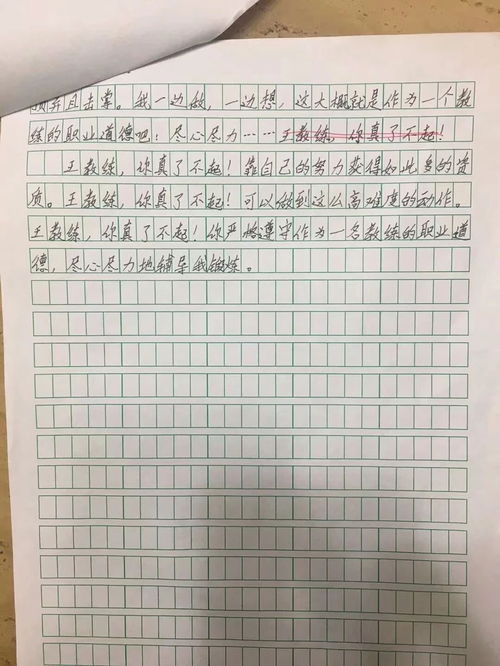 顶并且击掌。我一边做，一边想，这大概就是作为一个教
练的职业道德吧：尽心尽力……王教练，你真了不起！
王教练，你真了不起！靠自己的努力获得如此多的资
质。王教练，你真了不起！可以做到这么高难度的动作。
王教练，你真了不起！你严格遵守作为一名教练的职业道
德，尽心尽力地辅导我锻炼。